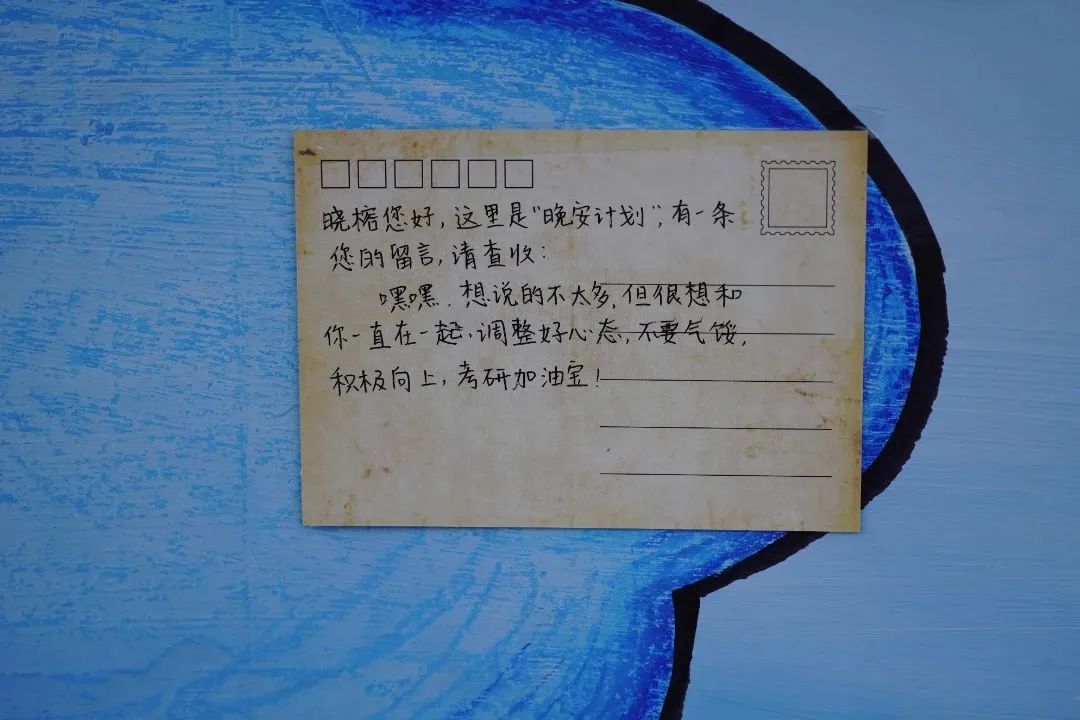 晓榕您好，这里是“晚安计划”，有一条
您的留言，请查收：
嘿嘿，想说的不太多，但很想和
你一直在一起，调整好心态，不要气馁，
积极向上，考研加油宝！